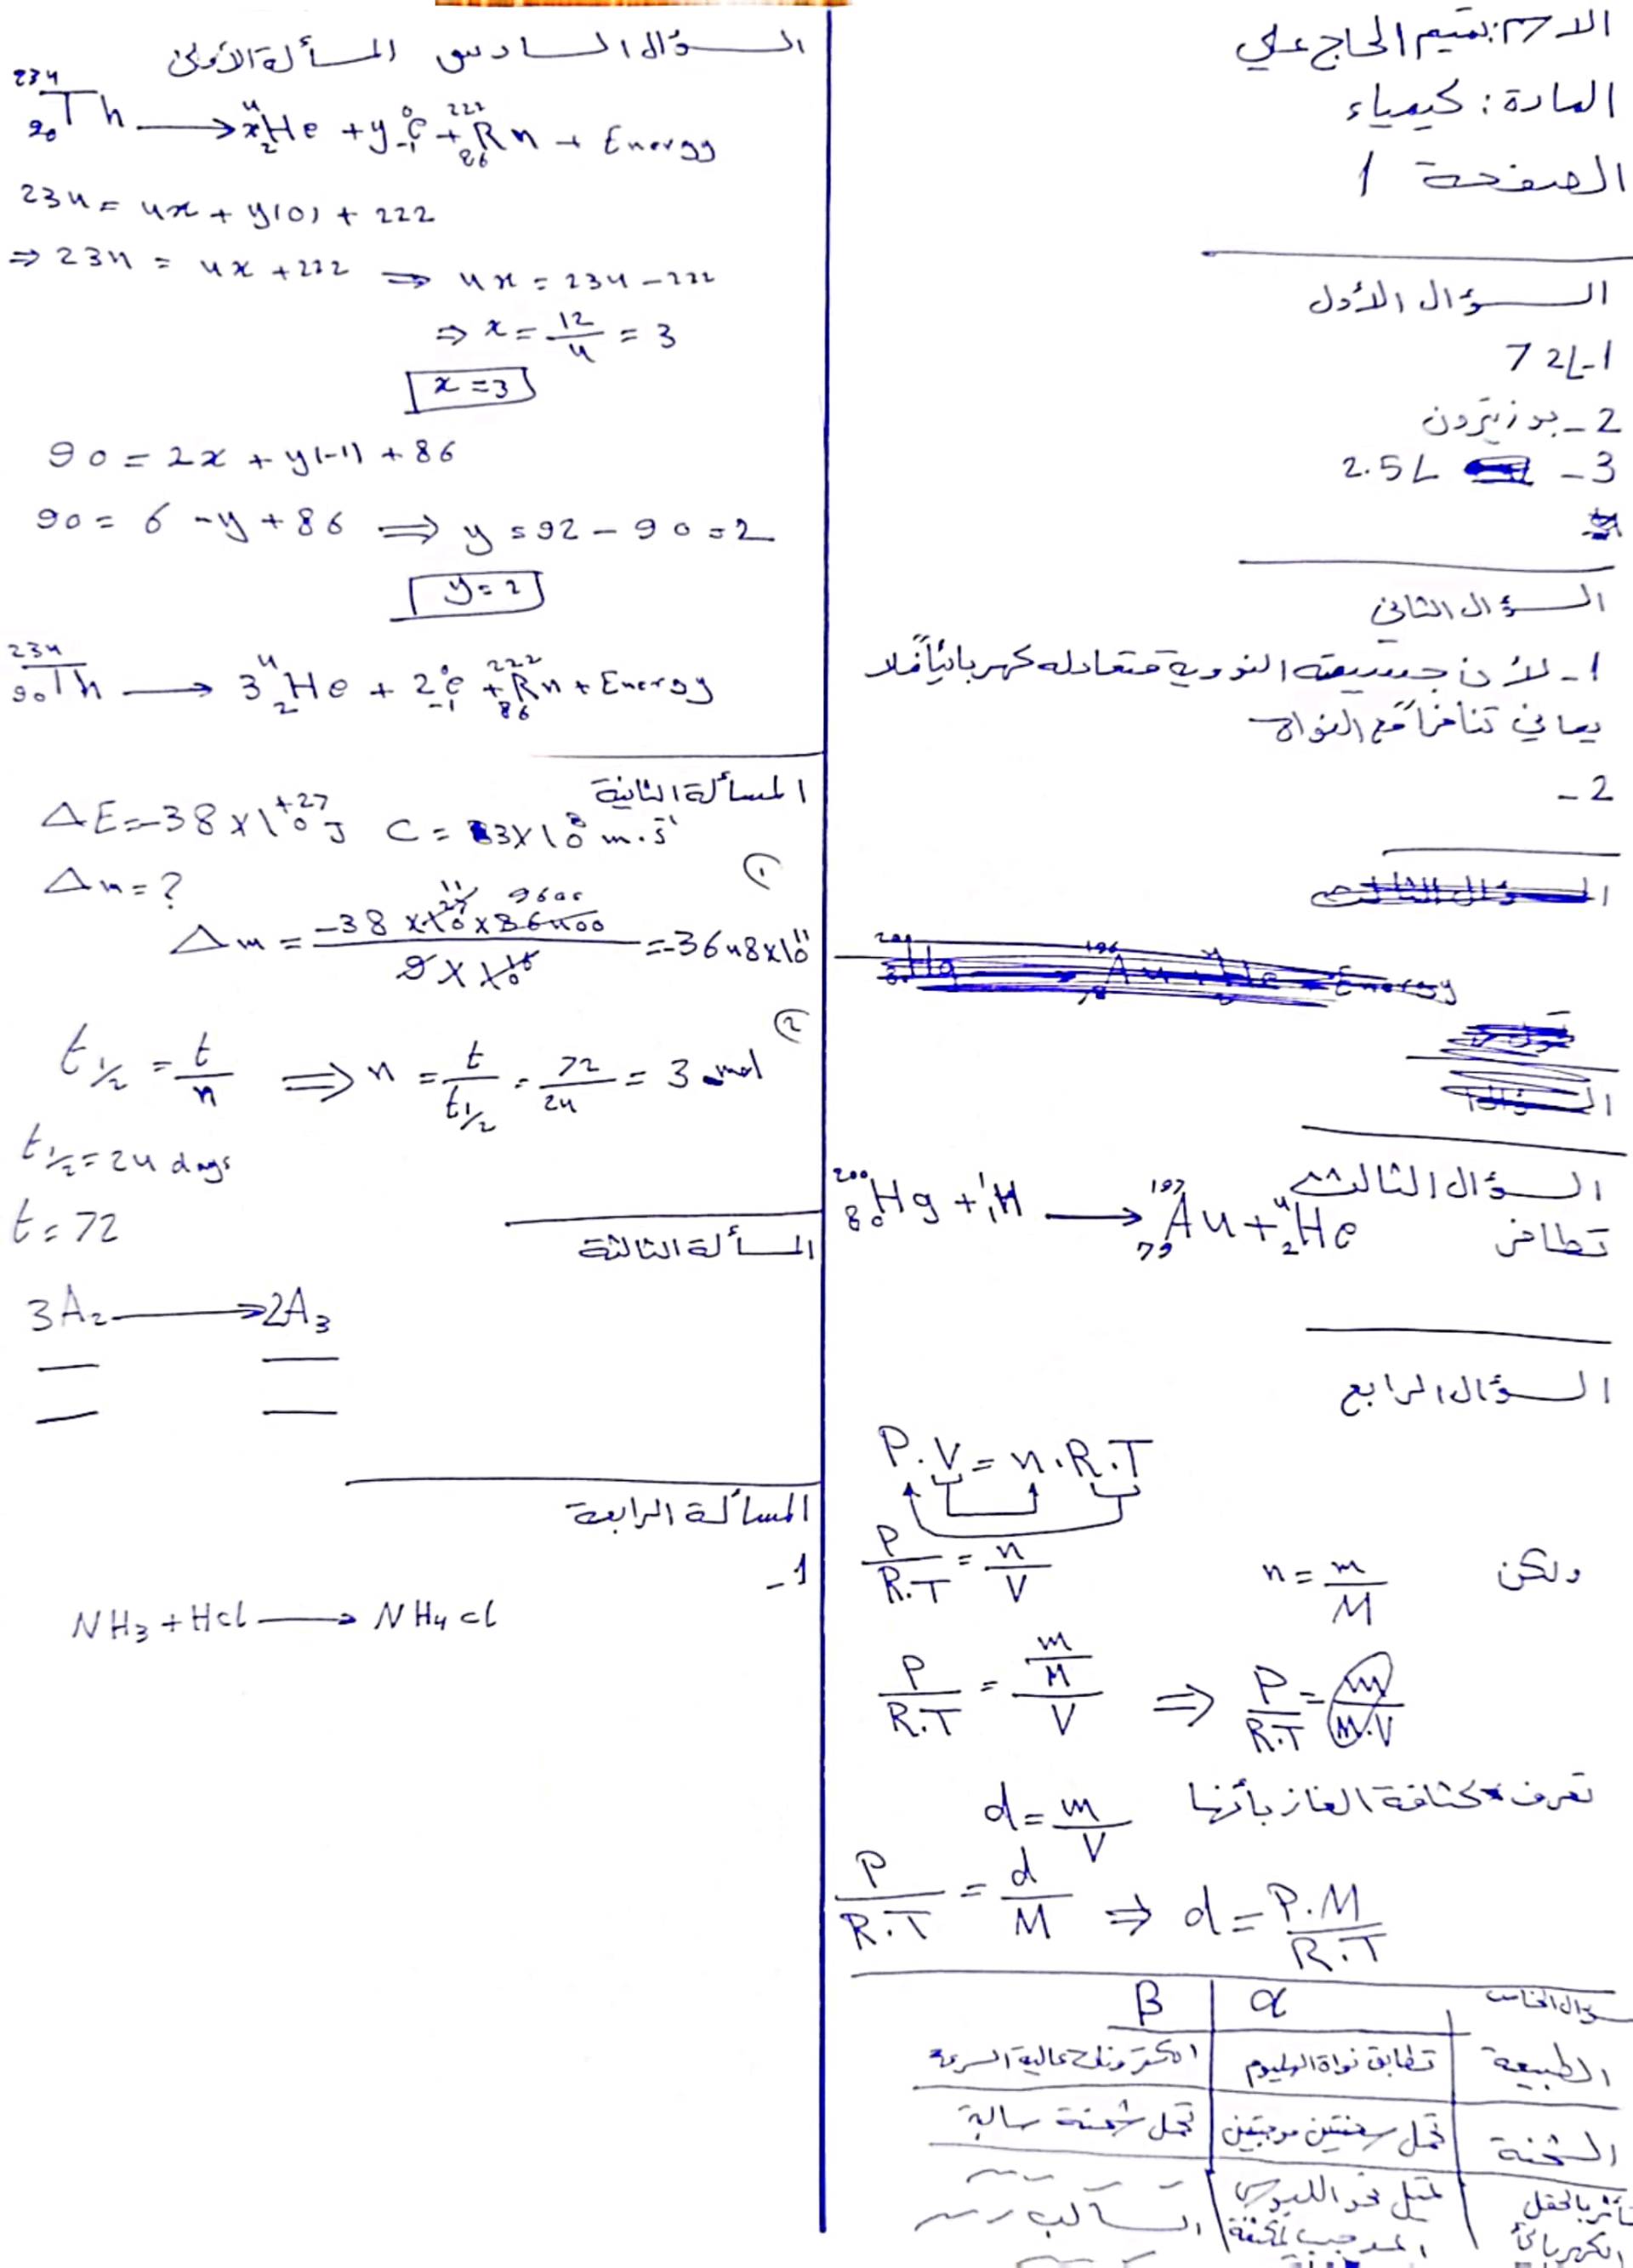 الاسم: تميم الحاج علي
المادة: كيمياء
الصفحة 1
السؤال الأول
1- 72L
2- بوزيترون
3- 2.5L
السؤال الثاني
1- لأن جسيمته النووية متعادله كهربائياً فلا
يعاني تنافراً مع النواة
2-
السؤال الثالث
²⁰⁰₈₀Hg + ¹₁H ⟶ ¹⁹⁷₇₉Au + ⁴₂He
تطافر
السؤال الرابع
P.V = n.R.T
P/R.T = n/V ولكن n = m/M
P/R.T = (m/M)/V ⇒ P/R.T = m/M.V
تعرف كثافة الغاز بأنها d = m/V
P/R.T = d/M ⇒ d = P.M/R.T
سؤال الخامس α β
الطبيعة تطابق نواة الهليوم الكترونات عالية السرعة
الشحنة تحمل شحنتين موجبتين تحمل شحنة سالبة
تأثر بالحقل الكهربائي تميل نحو اللبوس السالب لمكثفة
السؤال السادس المسألة الأولى
²³⁴₉₀Th ⟶ x⁴₂He + y⁰₋₁e + ²²²₈₆Rn + Energy
234 = 4x + y(0) + 222
⇒ 234 = 4x + 222 ⇒ 4x = 234 - 222
⇒ x = 12/4 = 3
x = 3
90 = 2x + y(-1) + 86
90 = 6 - y + 86 ⇒ y = 92 - 90 = 2
y = 2
²³⁴₉₀Th ⟶ 3⁴₂He + 2⁰₋₁e + ²²²₈₆Rn + Energy
المسألة الثانية
ΔE = -38 × 10⁺²⁷ J C = 3 × 10⁸ m.s⁻¹
Δm = ?
① Δm = -38 × 10²⁷ × 86400 / 9 × 10¹⁶ = -3648 × 10¹¹
② t½ = t/n ⇒ n = t/t½ = 72/24 = 3
t½ = 24 days
t = 72
المسألة الثالثة
3A₂ ⟶ 2A₃
المسألة الرابعة
1-
NH₃ + HCl ⟶ NH₄Cl